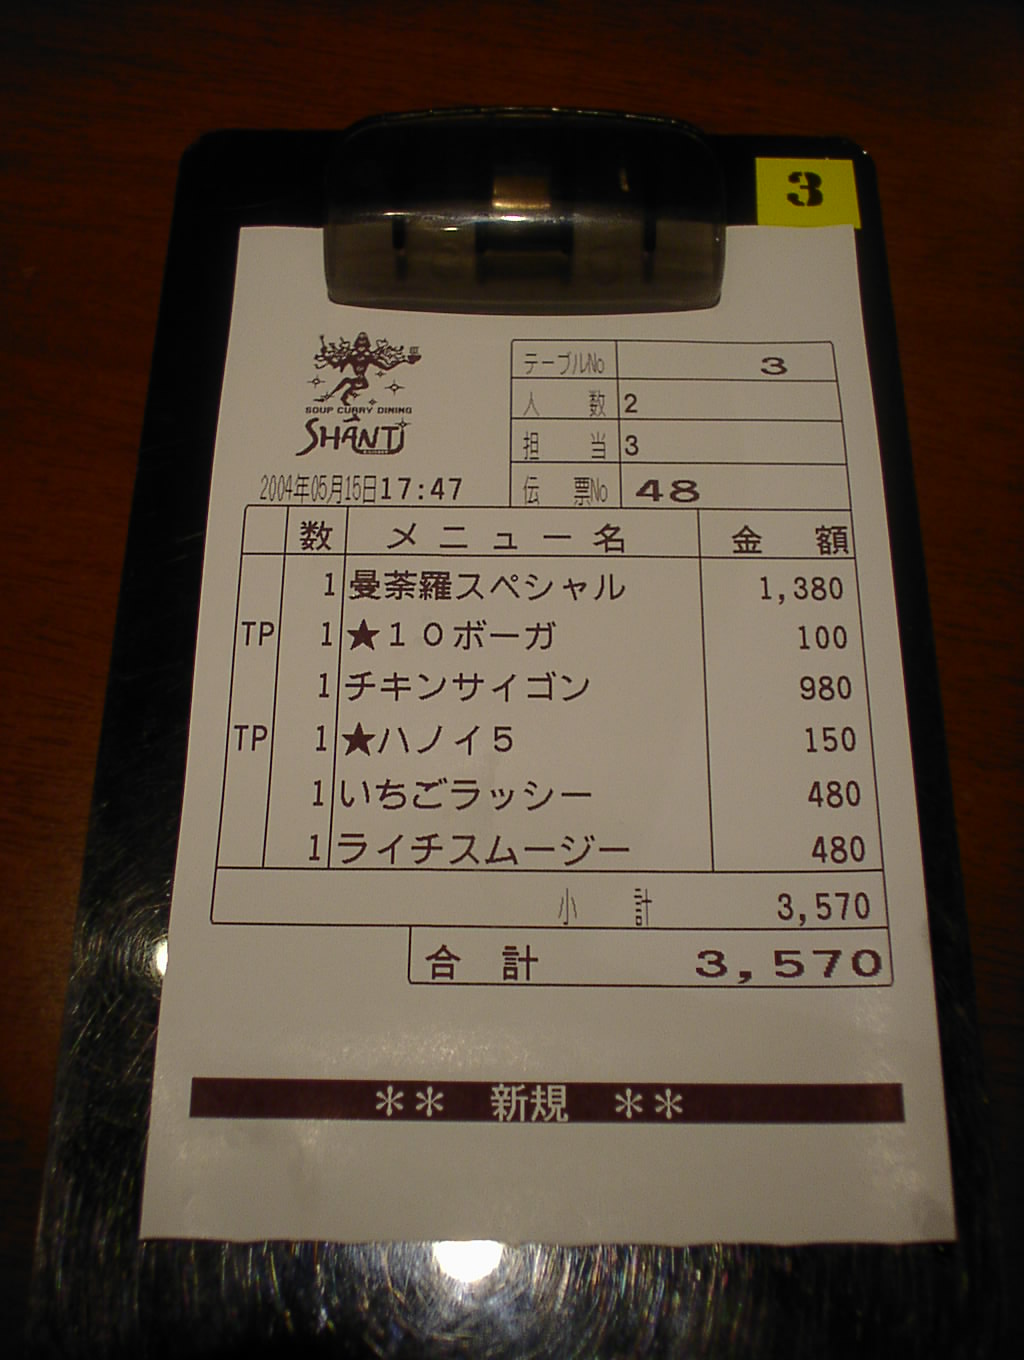 3
SOUP CURRY DINING
SHANTi
テーブルNo 3
人数 2
担当 3
伝票No 48
2004年05月15日17:47
数 メニュー名 金額
1 曼荼羅スペシャル 1,380
TP 1 ★１０ボーガ 100
1 チキンサイゴン 980
TP 1 ★ハノイ５ 150
1 いちごラッシー 480
1 ライチスムージー 480
小計 3,570
合計 3,570
＊＊ 新規 ＊＊